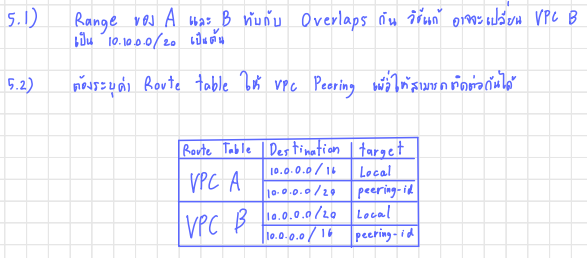 5.1) Range ของ A และ B ทับกับ Overlaps กัน วิธีแก้ อาจจะเปลี่ยน VPC B
เป็น 10.10.0.0/20 เป็นต้น
5.2) ต้องระบุค่า Route table ให้ VPC Peering เพื่อให้สามารถติดต่อกันได้
Route Table Destination target
VPC A 10.0.0.0/16 Local
10.0.0.0/20 peering-id
VPC B 10.0.0.0/20 Local
10.0.0.0/16 peering-id